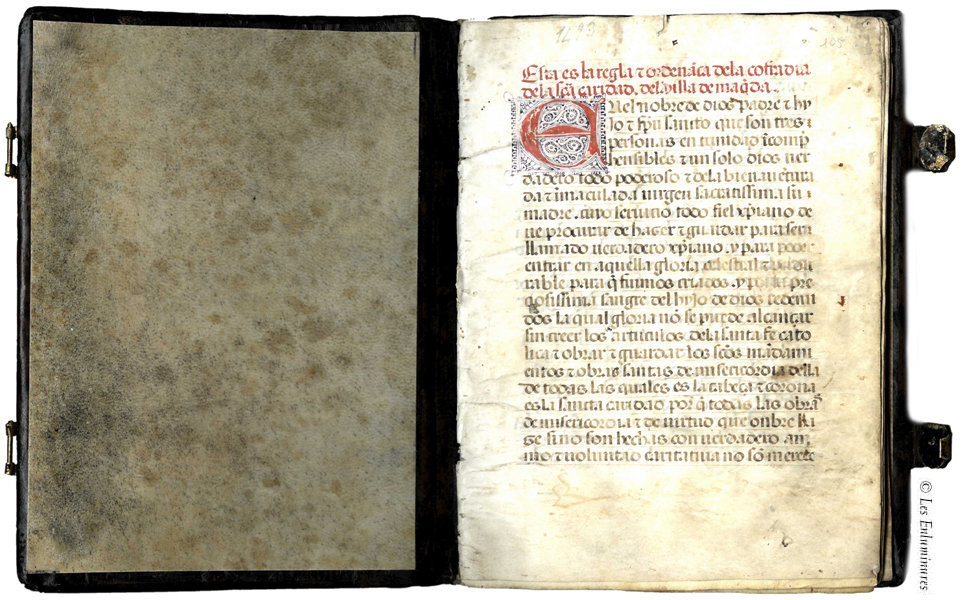 1493
105
Esta es la regla ⁊ ordenāça dela cofradia
dela sc̄a caridad. del villa de maq̄da.
En el nobre de dios padre ⁊ hy
jo ⁊ spū santo que son tres
personas en trinidad īcomp̄
hensibles ⁊ un solo dios ver
dadero todo poderoso ⁊ dela bien auētura
da ⁊ īmaculada uirgen sacratissima su
madre. cuyo seruicio todo fiel xp̄iano de
ue procurar de hazer ⁊ guardar para ser
llamado uerdadero xp̄iano. y para poder
entrar en aquella gloria celestial
rable para q̄ fuimos criados. y por la pre
çiosissima sangre del hyjo de dios redemi
dos la qual gloria nō se puede alcançar
sin creer los articulos dela santa fe cato
lica ⁊ obrar ⁊ guardar los sc̄os mādami
entos ⁊ obras santas de misericordia della
de todas las quales es la cabeça ⁊ corona
es la sancta caridad por q̄ todas las obras
de misericordia ⁊ de uirtud que onbre ha
ge si no son hechas con uerdadero ani
mo ⁊ voluntad caritatiua no sō merece
© Les Enluminures